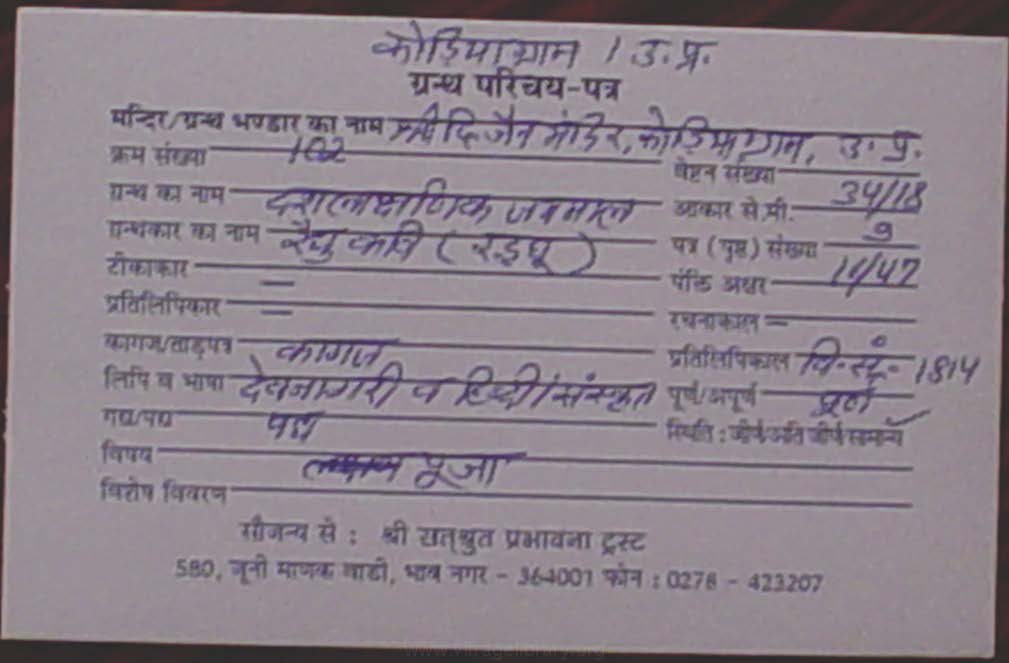 कोड़ियागाम / उ. प्र.
ग्रन्थ परिचय-पत्र
मन्दिर/ग्रन्थ भण्डार का नाम श्री दि जैन मंदिर, कोड़ियागाम, उ. प्र.
क्रम संख्या 102 वेष्टन संख्या
ग्रन्थ का नाम दशलाक्षणिक जयमाल आकार से.मी. 34/18
ग्रन्थकार का नाम रैधु कवि (रइधू) पत्र (पृष्ठ) संख्या 9
टीकाकार — पंक्ति अक्षर
प्रतिलिपिकार — रचनाकाल —
कागज/ताड़पत्र कागज प्रतिलिपिकाल वि. सं. - 1814
लिपि व भाषा देवनागरी व हिन्दी/संस्कृत पूर्ण/अपूर्ण पूर्ण
गद्य/पद्य पद्य स्थिति : जीर्ण अति जीर्ण सामान्य ✓
विषय पूजा
विशेष विवरण
सौजन्य से : श्री सत्श्रुत प्रभावना ट्रस्ट
580, जूनी माणक वाडी, भाव नगर - 364001 फोन : 0278 - 423207